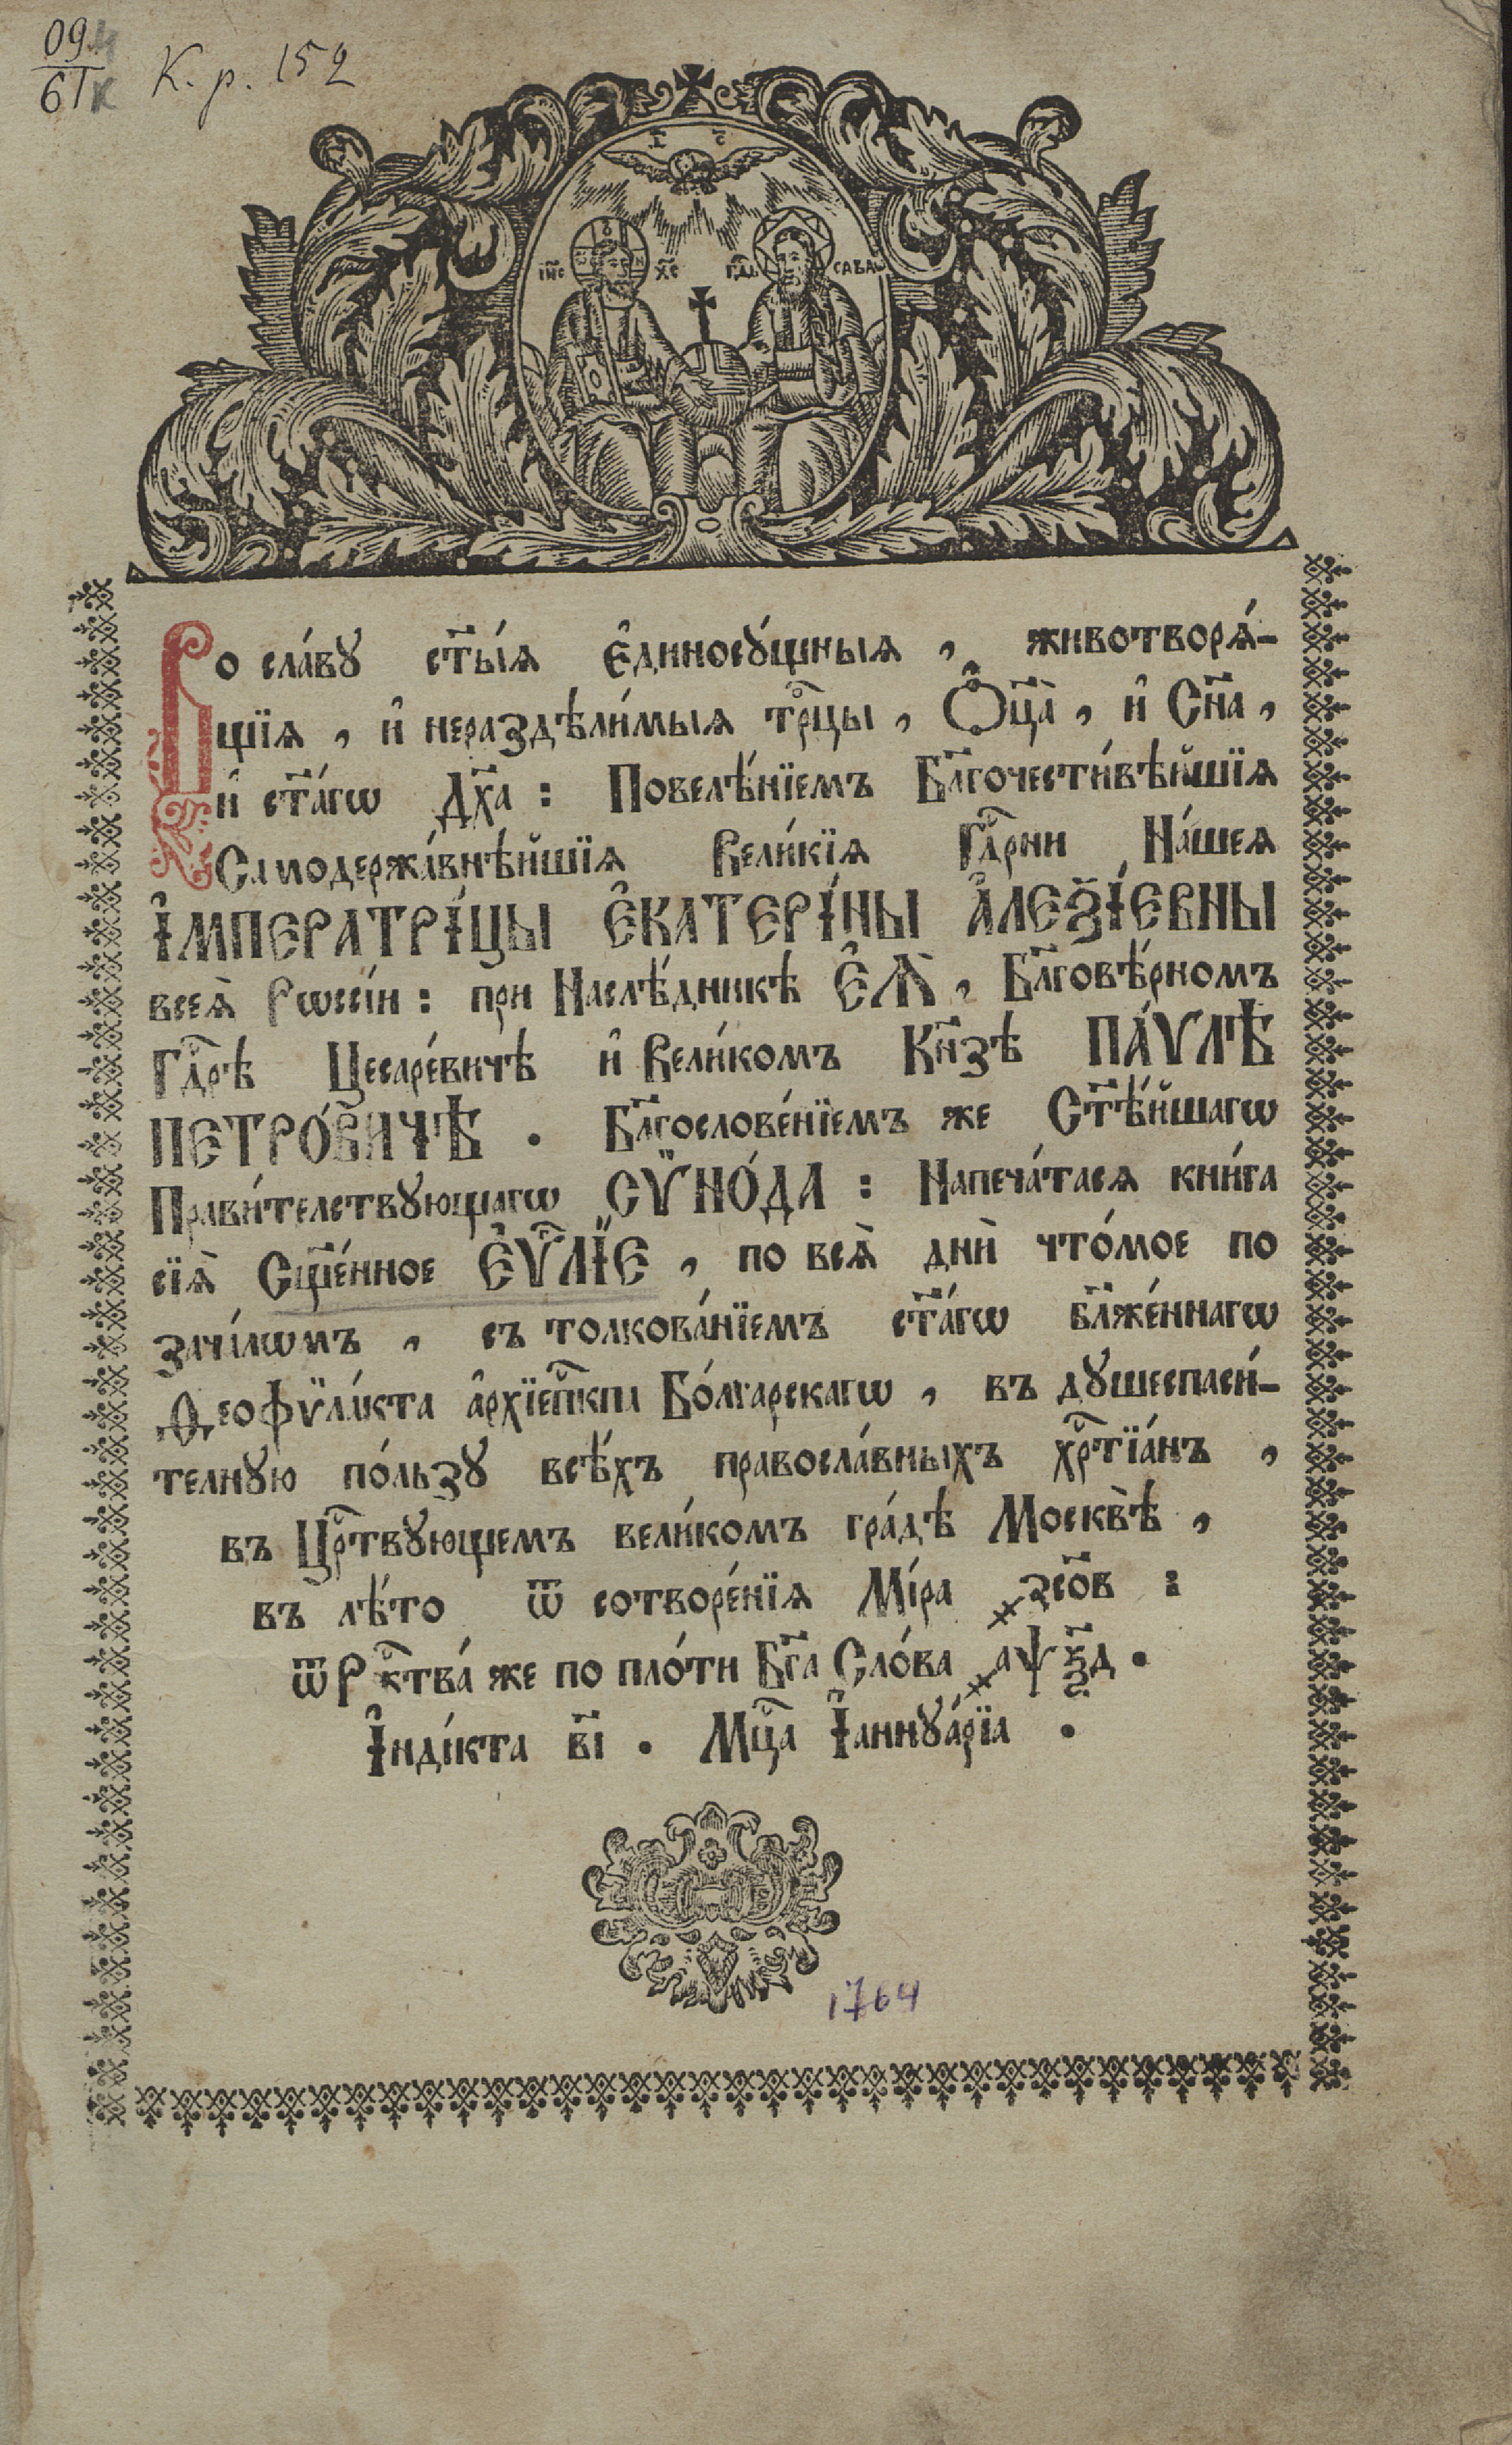 09.4
61к К. р. 152
І҃ С҃
Іи҃с Хс҃ Гд҃ь САВАѠ
Во сла́вꙋ ст҃ы́ѧ є҆диносꙋ́щныѧ , животворѧ́-
щїѧ , и҆ нераздѣли́мыѧ трⷪ҇цы , Ѻ҆ц҃а̀ , и҆ Сн҃а ,
и҆ ст҃а́гѡ Дх҃а : Повелѣ́нїемъ Бл҃гочести́вѣйшїѧ
Самодержа́внѣйшїѧ Вели́кїѧ Гдⷭ҇рни На́шеѧ
І҆МПЕРАТРІ́ЦЫ Є҆КАТЕРІ́НЫ А҆ЛЕѮІ́ЕВНЫ
всеѧ̀ Рѡссі́и : при Наслѣ́дникѣ Є҆Ѧ̀ , Бл҃говѣ́рномъ
Гдⷭ҇рѣ Цесаре́вичѣ и҆ Вели́комъ Кн҃зѣ ПА́ѴЛѢ
ПЕТРО́ВИЧѢ . Бл҃гослове́нїемъ же Ст҃ѣ́йшагѡ
Прави́телствꙋющагѡ СѴ̈НО́ДА : Напеча́тасѧ кни́га
сїѧ̀ Сщ҃е́нное Є҆Ѵⷢ҇ЛЇЕ , по всѧ̀ дни̑ что́мое по
зача́лѡмъ , съ толкова́нїемъ ст҃а́гѡ бл҃же́ннагѡ
Ѳеофѷла́кта а҆рхїепⷭ҇кпа Бо́лгарскагѡ , въ дꙋшеспаси́-
телнꙋю по́льзꙋ всѣ́хъ правосла́вныхъ хрⷭ҇тїа́нъ ,
въ Црⷭ҇твꙋющемъ вели́комъ гра́дѣ Москвѣ̀ ,
въ лѣ́то ѿ сотворе́нїѧ Мі́ра ҂зсо҃в :
ѿ Рⷤ҇ктва́ же по пло́ти Бг҃а Сло́ва ҂аѱѯ҃д .
І҆нді́кта в҃і . Мцⷭ҇а І҆аннꙋа́рїа .
1764